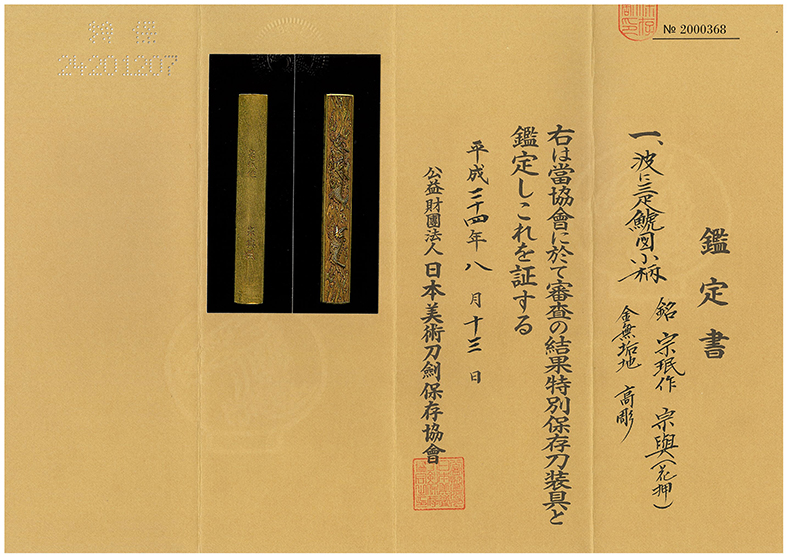 № 2000368
鑑定書
一、波に三疋鯱図小柄
銘 宗珉作 宗與(花押)
金無垢地 高彫
右は當協會に於て審査の結果特別保存刀装具と
鑑定しこれを証する
平成二十四年八月十三日
公益財團法人 日本美術刀劍保存協會
24201207